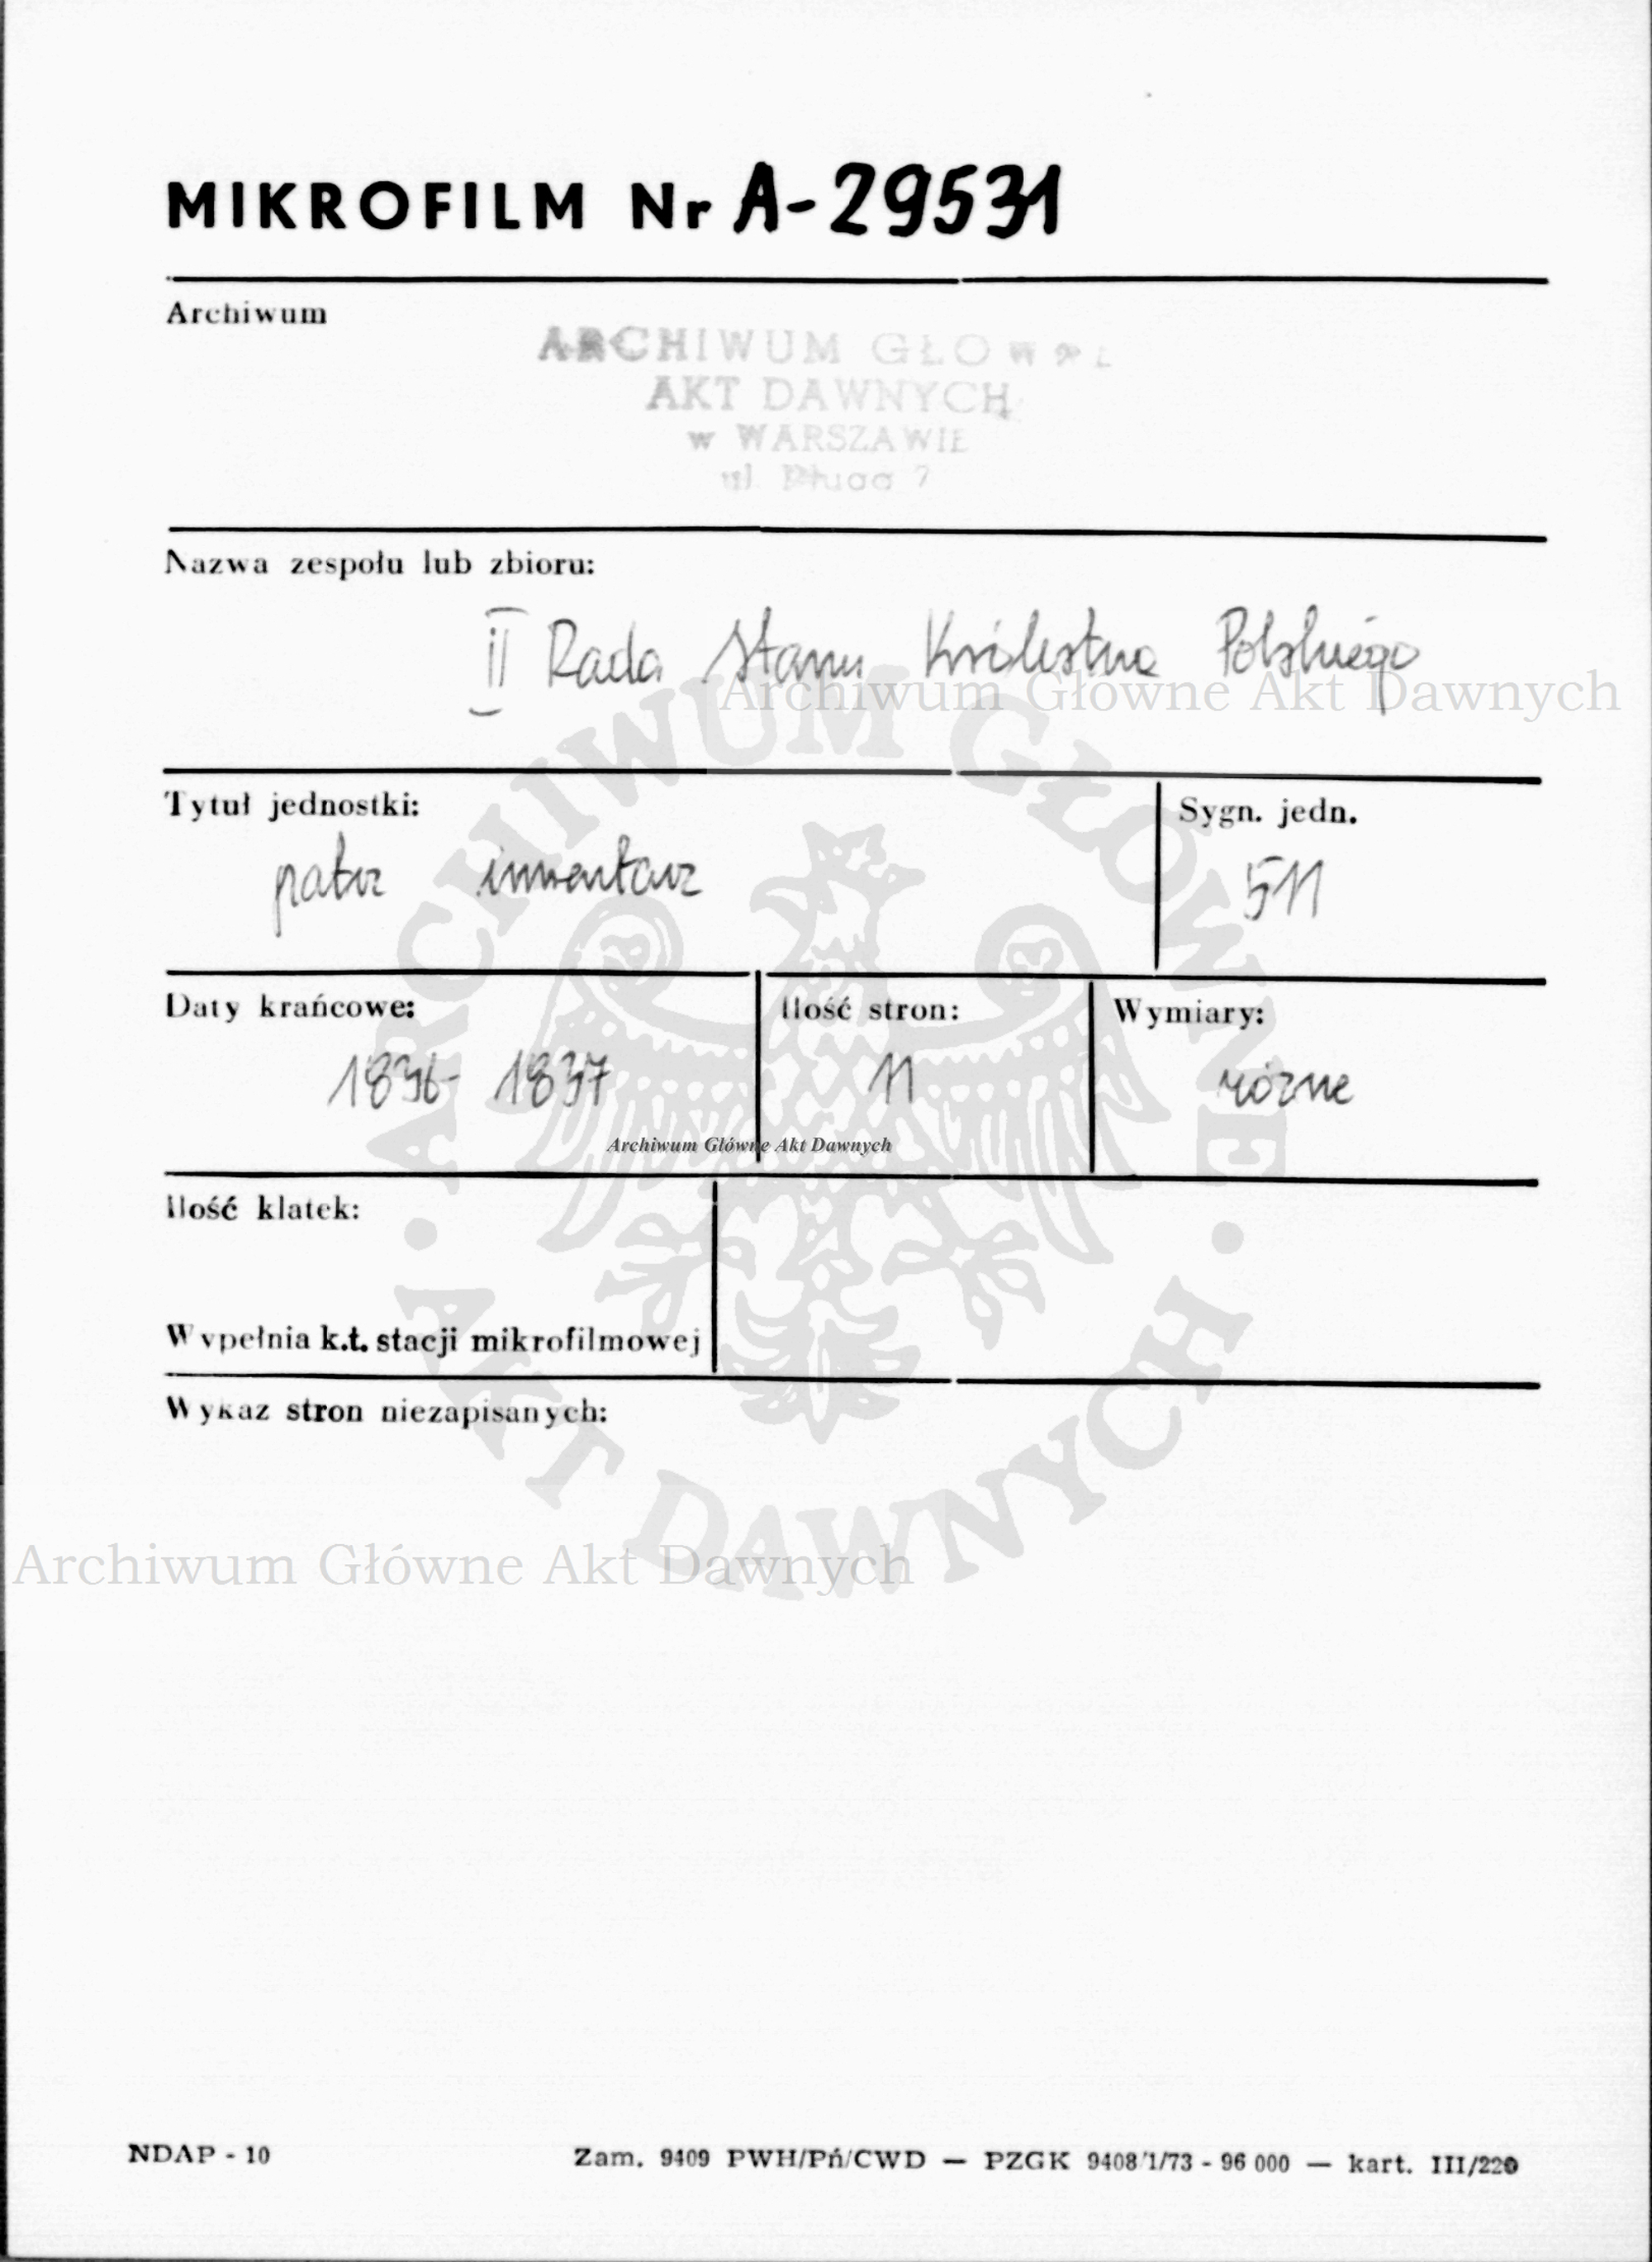 MIKROFILM Nr A-29531
Archiwum
ARCHIWUM GŁÓWNE
AKT DAWNYCH
w WARSZAWIE
ul. Długa 7
Nazwa zespołu lub zbioru:
II Rada Stanu Królestwa Polskiego
Archiwum Główne Akt Dawnych
Tytuł jednostki:
Sygn. jedn.
patrz inwentarz
511
Daty krańcowe:
Ilość stron:
Wymiary:
1836- 1837
11
różne
Archiwum Główne Akt Dawnych
Ilość klatek:
Wypełnia k.t. stacji mikrofilmowej
Wykaz stron niezapisanych:
ARCHIWUM GŁÓWNE · AKT DAWNYCH ·
Archiwum Główne Akt Dawnych
NDAP - 10
Zam. 9409 PWH/Pń/CWD — PZGK 9408/1/73 - 96 000 — kart. III/220